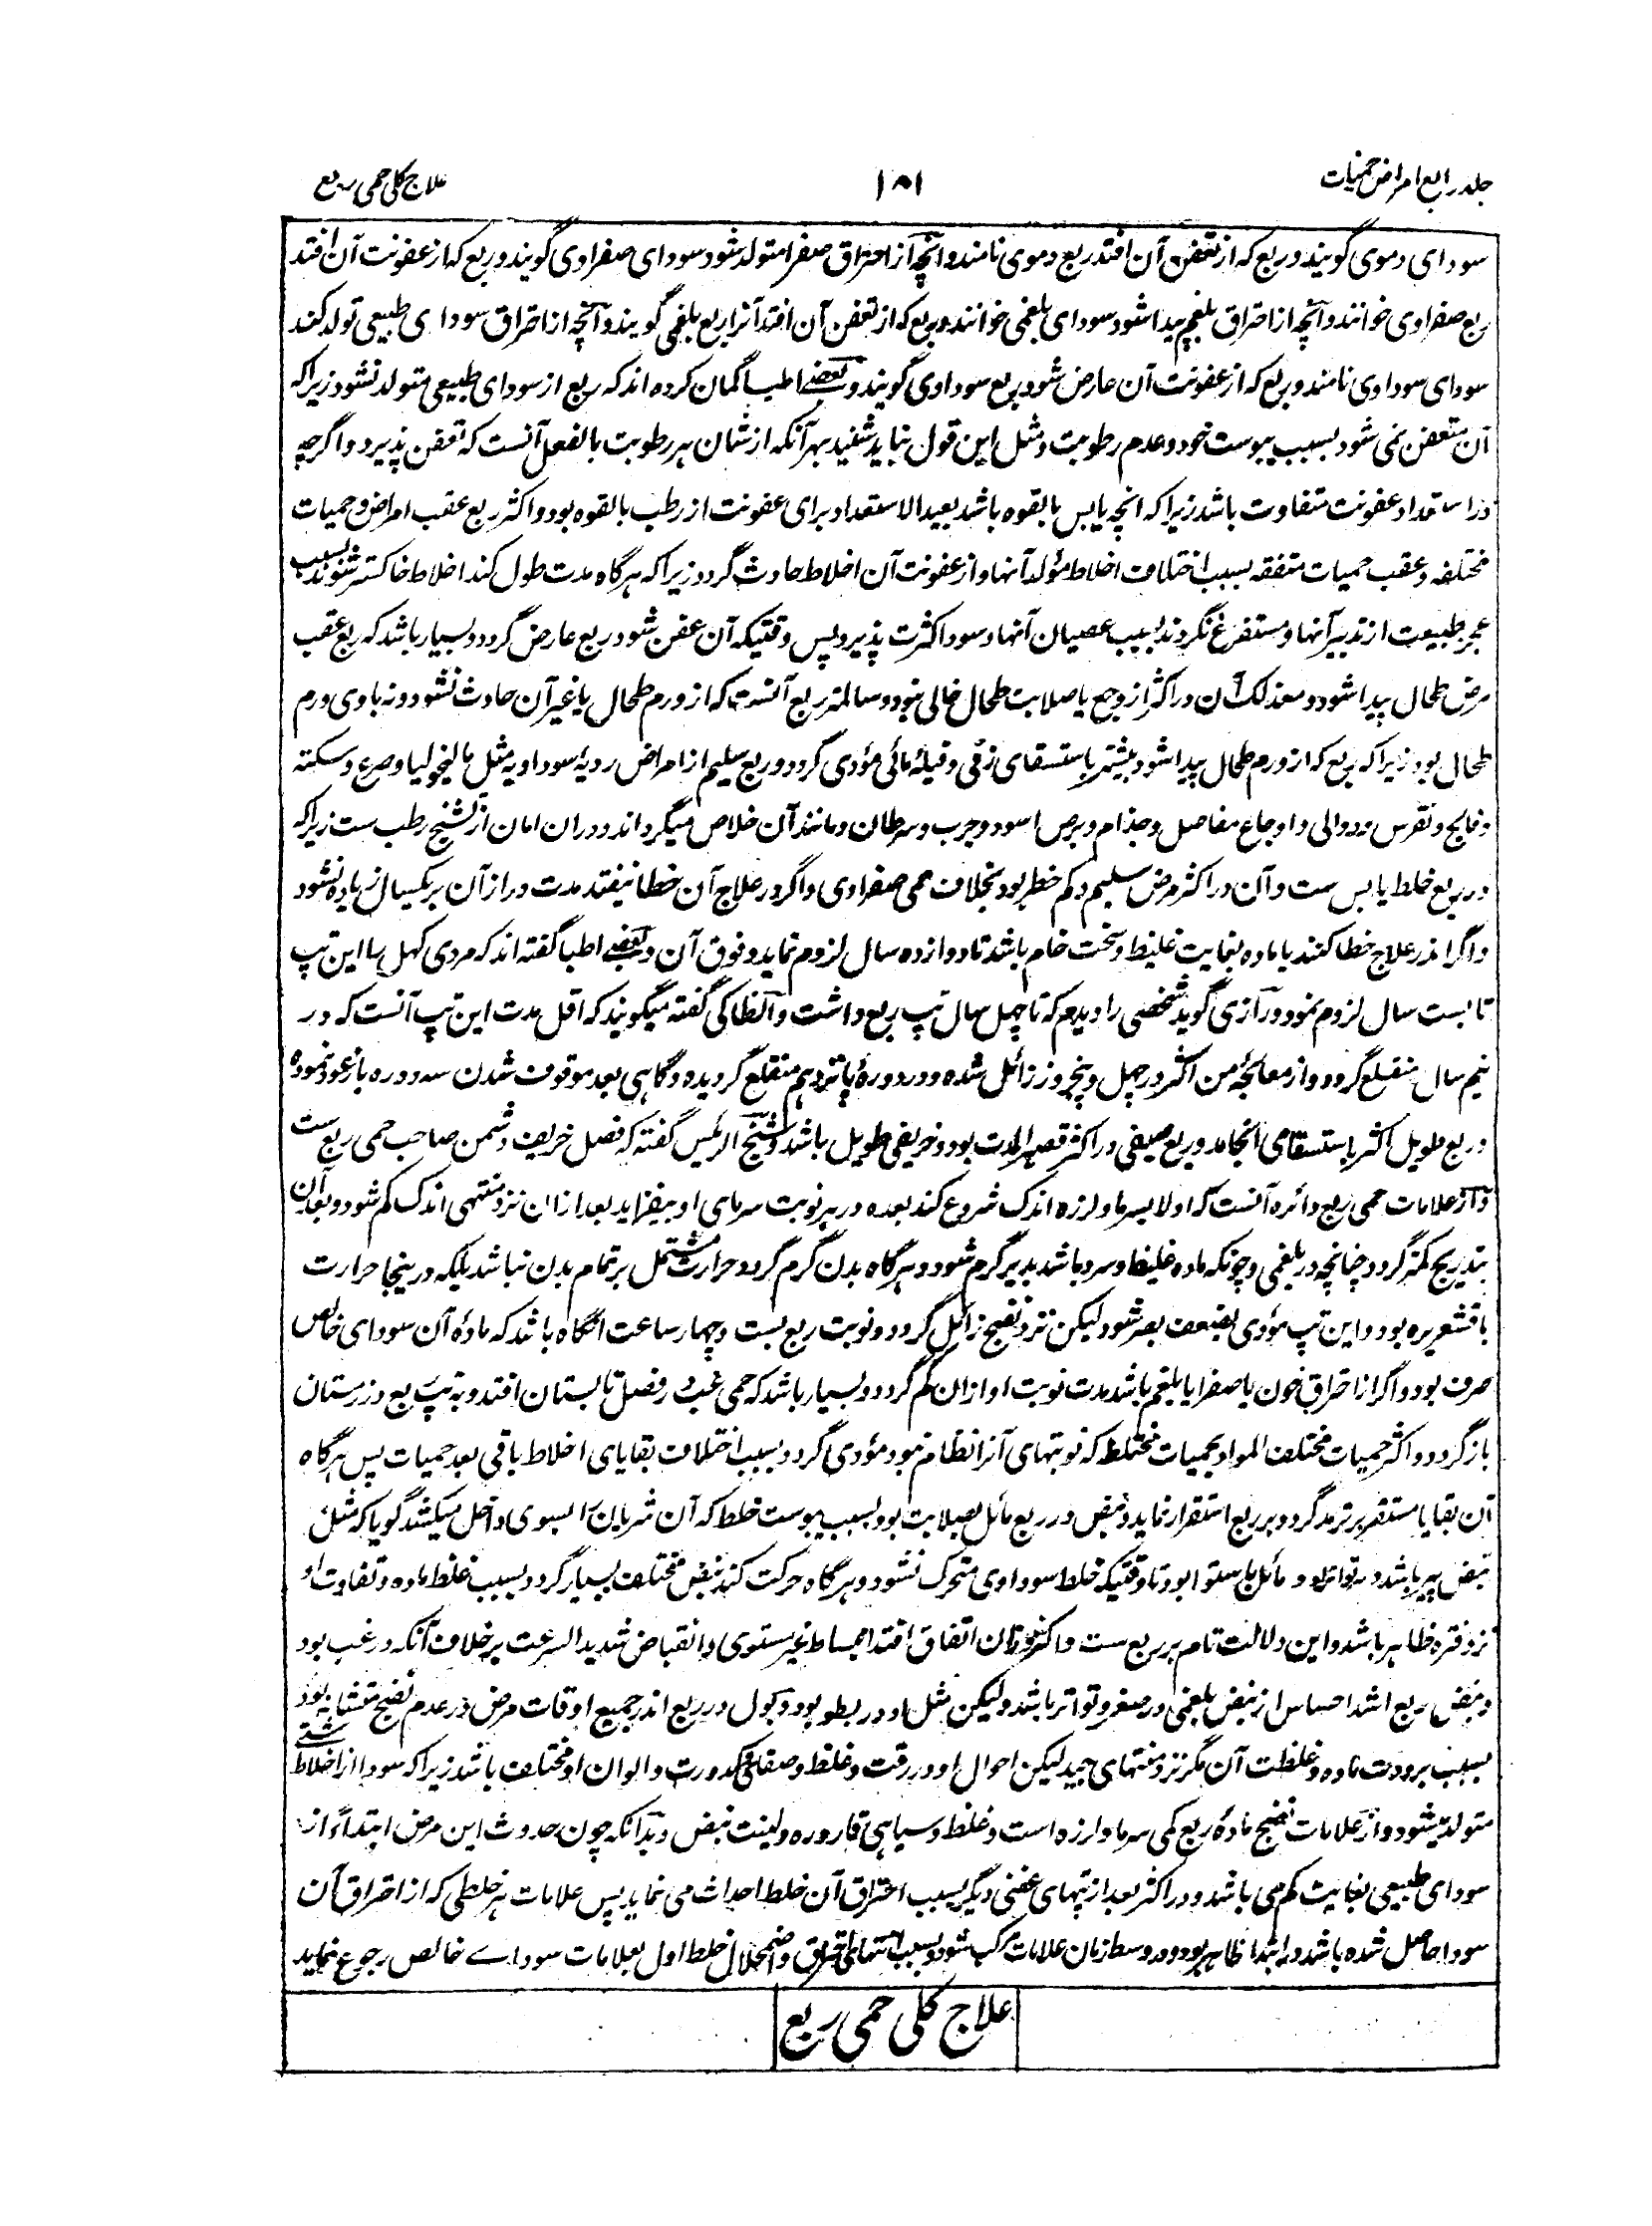 جلد رابع امراض حمیات
۱۵۱
علاج کلی حمی ربع
سودای دموی گویند و ربع که از تعفن آن افتد ربع دموی نامند و آنچه از احتراق صفرا متولد شود سودای صفراوی گویند و ربع که از عفونت آن افتد
ربع صفراوی خوانند و آنچه از احتراق بلغم پیدا شود سودای بلغمی خوانند و ربع که از تعفن آن افتد آنرا ربع بلغمی گویند و آنچه از احتراق سودای طبیعی تولد کند
سودای سوداوی نامند و ربع که از عفونت آن عارض شود ربع سوداوی گویند و بعضے اطبا گمان کرده اند که ربع از سودای طبیعی متولد نشود زیراکه
آن متعفن نمی شود بسبب یبوست خود و عدم رطوبت و مثل این قول نباید شنید بهر آنکه از شان هر رطوبت بالفعل آنست که تعفن پذیرد و اگرچه
در استعداد عفونت متفاوت باشد زیراکه انچه یابس بالقوه باشد بعید الاستعداد برای عفونت از رطب بالقوه بود و اکثر ربع عقب امراض و حمیات
مختلفه و عقب حمیات متفقه بسبب اختلاف اخلاط مؤلد آنها و از عفونت آن اخلاط حادث گردد زیراکه هرگاه مدت طول کند اخلاط خاکستر شوند بسبب
عجز طبیعت از تدبیر آنها و مستفرغ نگردند بسبب عصیان آنها و سودا کثرت پذیرد پس وقتیکه آن عفن شود ربع عارض گردد و بسیار باشد که ربع عقب
مرض طحال پیدا شود و معذلک آن در اکثر از وجع یا صلابت طحال خالی نبود و سالم‌تر ربع آنست که از ورم طحال یا غیر آن حادث نشود و نه باوی ورم
طحال بود زیراکه ربع که از ورم طحال پیدا شود بیشتر باستسقای زقی و قیلهٔ مائی مؤدی گردد و ربع سلیم از امراض ردیه سوداویه مثل مالیخولیا و صرع و سکته
و فالج و نقرس و دوالی و اوجاع مفاصل و جذام و برص اسود و جرب و سرطان و مانند آن خلاص میگرداند و دران امان از تشنج رطب ست زیراکه
در ربع خلط یابس ست و آن در اکثر مرض سلیم و کم خطر بود بخلاف حمی صفراوی و اگر در علاج آن خطا نیفتد مدت دراز آن بر یکسال زیاده نشود
و اگر اندر علاج خطا کنند یا ماده بغایت غلیظ و سخت خام باشد تا دوازده سال لزوم نماید و فوق آن و بعضے اطبا گفته اند که مردی کهل را این تپ
تا بست سال لزوم نمود و رازی گوید شخصی را دیدم که تا چهل سال تپ ربع داشت و انطاکی گفته میگویند که اقل مدت این تپ آنست که در
نیم سال منقلع گردد و از معالجهٔ من اکثر در چهل و پنجروز زائل شده و در دورهٔ پانزدهم منقلع گردیده و گاهی بعد موقوف شدن سه دوره باز عود نموده
و ربع طویل اکثر باستسقا می انجامد و ربع صیفی در اکثر قصیر المدت بود و خریفی طویل باشد و شیخ الرئیس گفته که فصل خریف دشمن صاحب حمی ربع ست
و از علامات حمی ربع دائره آنست که اولا بسرما و لرزه اندک شروع کند بعده در هر نوبت سرمای او بیفزاید بعد ازان نزد منتهی اندک کم شود و بعد آن
بتدریج کمتر گردد چنانچه در بلغمی و چونکه ماده غلیظ و سرد باشد بدیر گرم شود و هرگاه بدن گرم گردد حرارت مشتمل بر تمام بدن نباشد بلکه در ینجا حرارت
باقشعریره بود و این تپ مؤدی بضعف بصر شود لیکن نزد نضج زائل گردد و نوبت ربع بست و چهار ساعت انگاه باشد که مادهٔ آن سودای خالص
صرف بود و اگر از احتراق خون یا صفرا یا بلغم باشد مدت نوبت او ازان کم گردد و بسیار باشد که حمی غب در فصل تابستان افتد و به تپ ربع در زمستان
باز گردد و اکثر حمیات مختلف المواد بحمیات مختلط که نوبتهای آنرا نظام نبود مؤدی گردد بسبب اختلاف بقایای اخلاط باقی بعد حمیات پس هرگاه
آن بقایا مستقر بر ترمد گردد بر ربع استقرار نماید و نبض در ربع مائل بصلابت بود بسبب یبوست خلط که آن شریان را بسوی داخل میکشد گویا که مثل
نبض پیر باشد و مائل باستوا بود تا وقتیکه خلط سوداوی متحرک نشود و هرگاه حرکت کند نبض مختلف بسیار گردد بسبب غلظ ماده و تفاوت او
نزد فتره ظاهر باشد و این دلالت تام بر ربع ست و اتفاق افتد انبساط غیر مستوی و انقباض شدید السرعت بر خلاف آنکه در غب بود
و نبض ربع اشد احساس از نبض بلغمی در صغر و تواتر باشد و لیکن مثل او در بطو بود و بول در ربع اندر جمیع اوقات مرض در عدم نضج متشابه بود
بسبب برودت ماده و غلظت آن مگر نزد منتهای جید لیکن احوال او در رقت و غلظ و صفا و کدورت و الوان او مختلف باشد زیراکه سودا از اخلاط شتے
متولد میشود و از علامات نضج مادهٔ ربع کمی سرما و لرزه است و غلظ و سیاهی قاروره و لینت نبض و بدانکه چون حدوث این مرض ابتداءً از
سودای طبیعی بغایت کم می باشد و در اکثر بعد از تپهای عفنی دیگر بسبب احتراق آن خلط احداث می نماید پس علامات هر خلطی که از احتراق آن
سودا حاصل شده باشد در ابتدا ظاهر بود و در وسط زمان علامات مرکب شود و بسبب انتهای احتراق و اضمحلال خلط اول بعلامات سوداے خالص رجوع نماید
علاج کلی حمی ربع